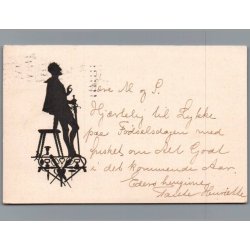 Kære M og S.
Hjærtelig til Lykke
paa Fødselsdagen med
ønsket om alt Godt
i det kommende Aar.
Eders hengivne
Tante Henriette